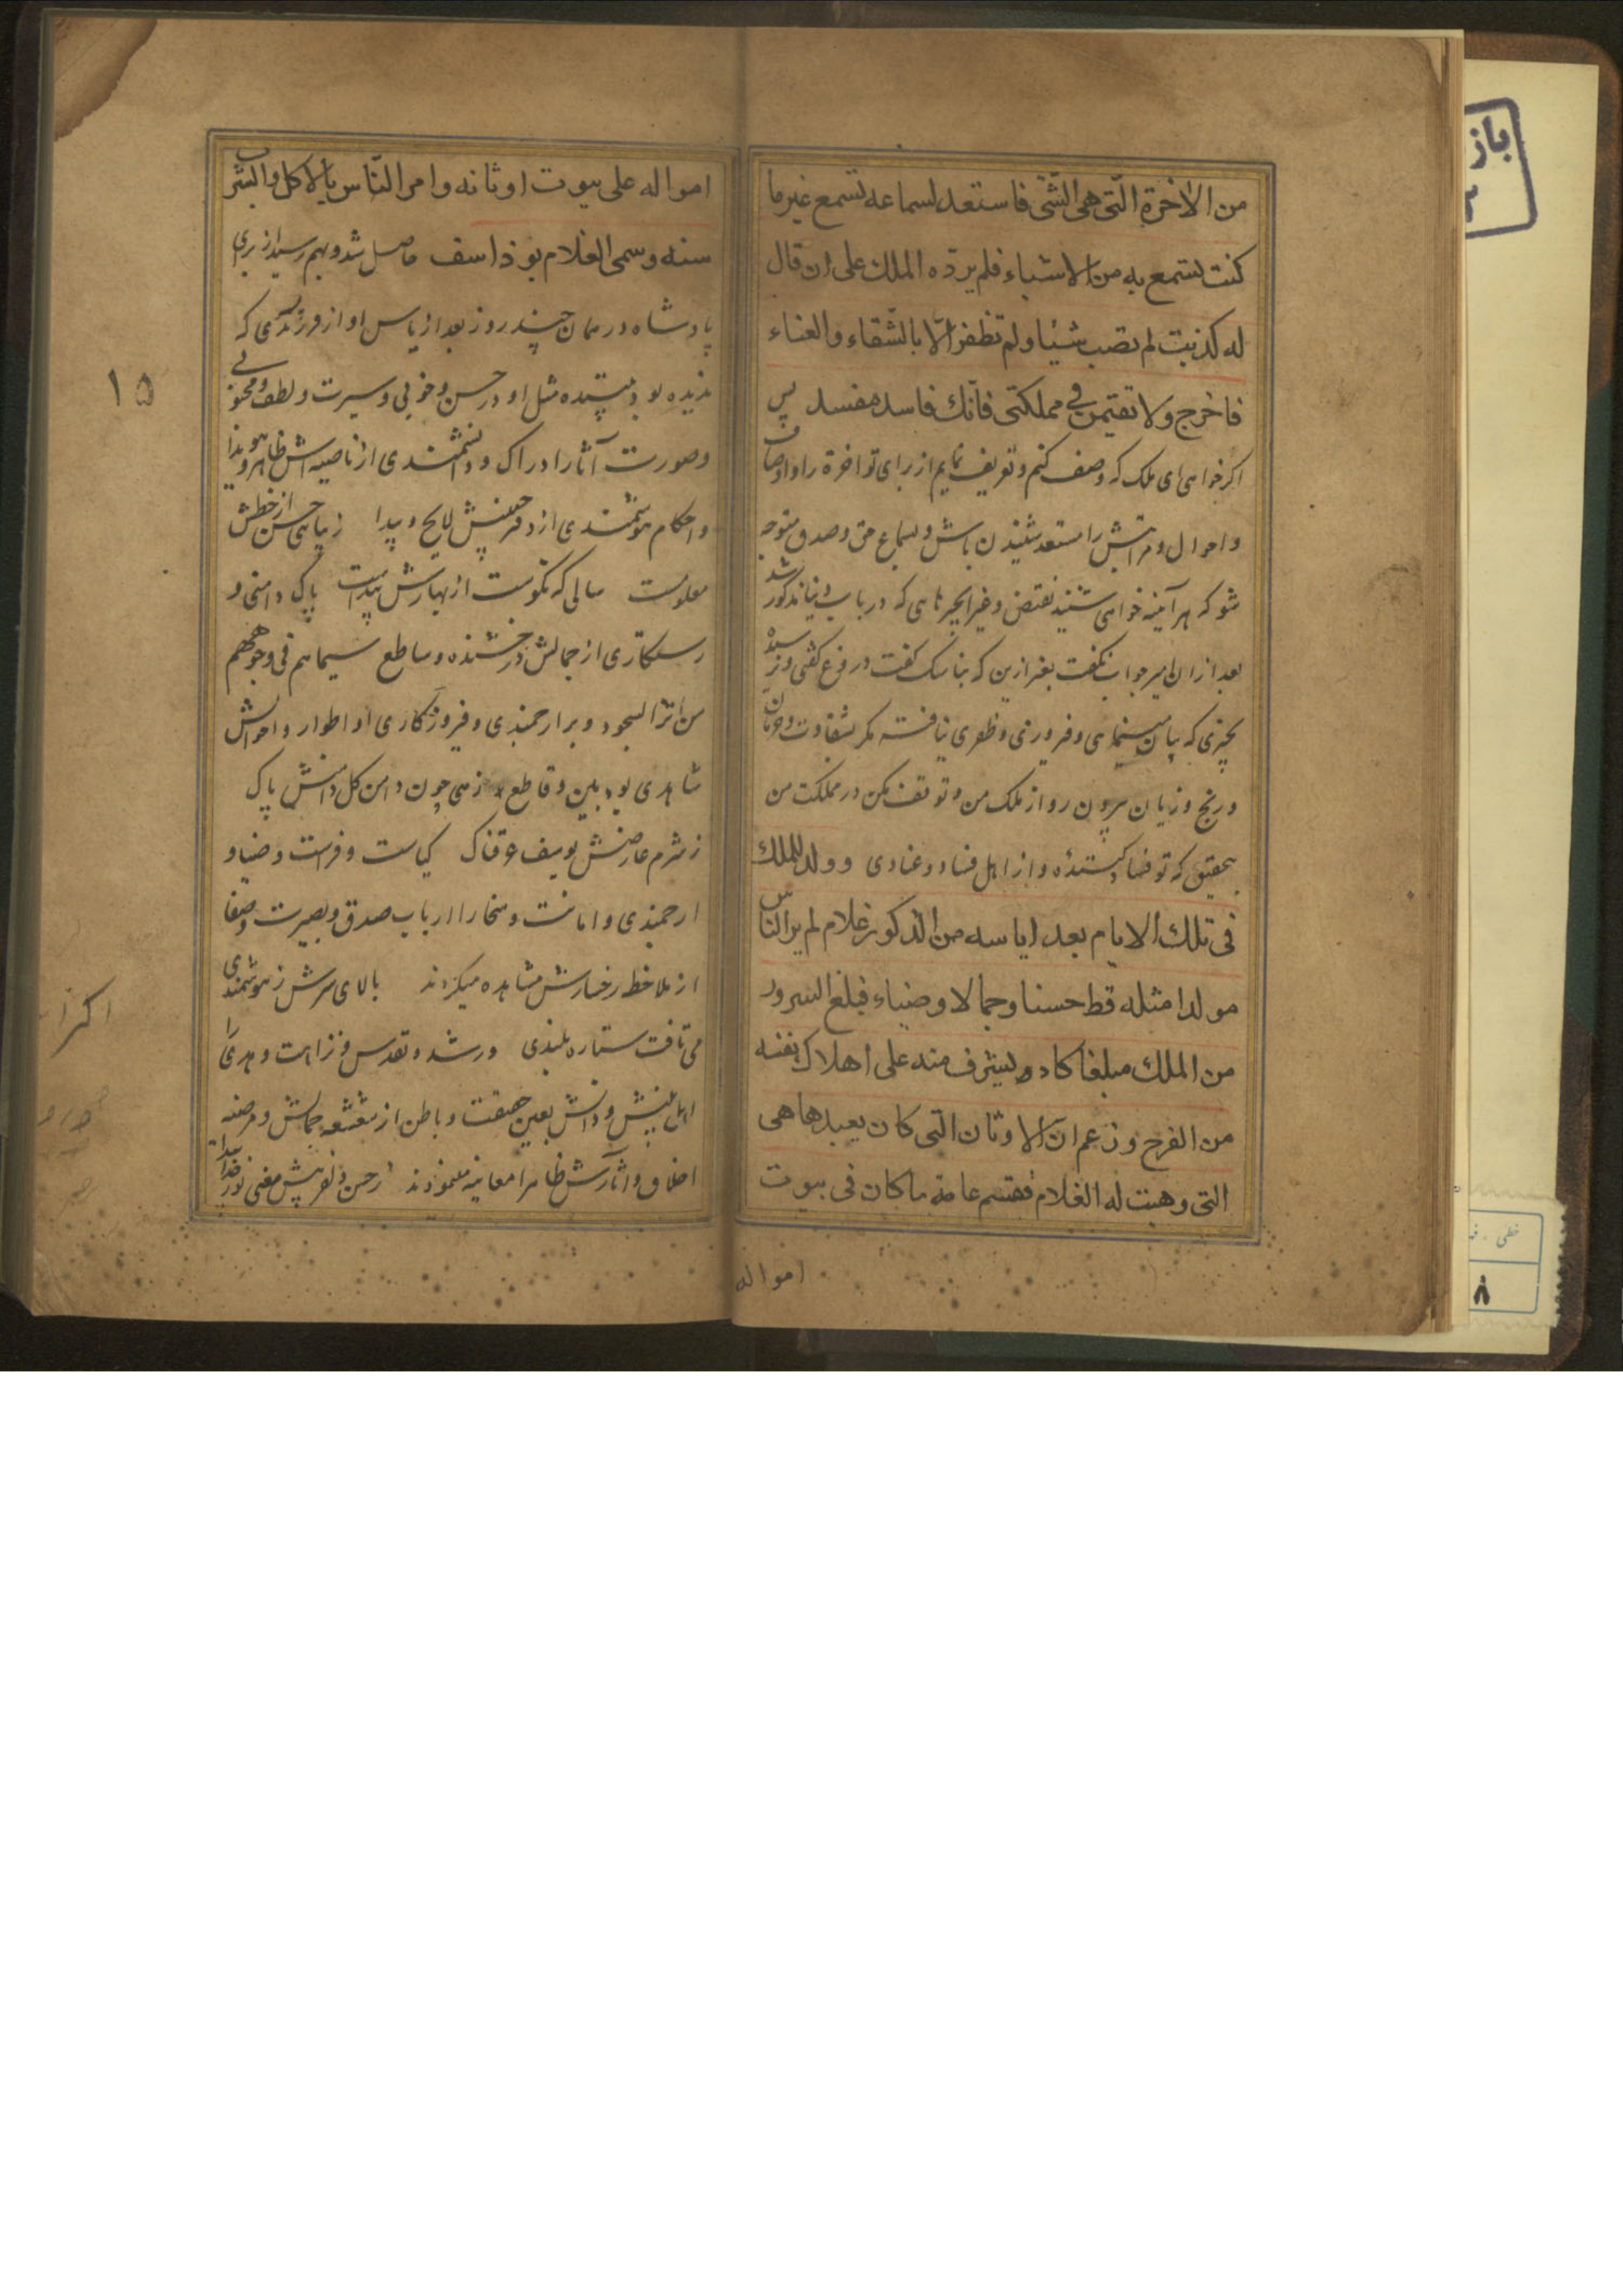 من الاخرة الّتی هی الشّیٔ فاستعد لسماعه تسمع غیرما
کنت تستمع به من الاشیاء فلم یردّه الملك علی ان قال
له کذبت لم تصب شیٔا ولم تظفر الّا بالشّقاء والعناء
فاخرج ولا تقیمن فی مملکتی فانّك فاسد مفسد پس
اکر خواهی ای ملک که وصف کنم و تعریف نمایم از برای تو اخرة را و اوصاف
و احوال و مراتبش را مستعد شنیدن باش و بسماع حق و صدق متوجه
شو که هر آینه خواهی شنید نقیض و غیر انچیزهایی که در باب دنیا مذکور شد
بعد از ان امیر جواب نکفت بغیر ازین که بناسک کفت دروغ کفتی و نرسیدهٔ
بچیزی که بیان مینمایی و فیروزی و ظفری نیافتهٔ مکر بشقاوت و حرمان
و رنج و زیان بیرون رو از ملک من و توقف مکن در مملکت من
بتحقیق که تو فساد کنندهٔ و از اهل فساد و عنادی و ولد للملك
فی تلك الایام بعد ایاسه من الذکور غلام لم یر الناس
مولدا مثله قط حسنا وجمالا وضیاء فبلغ السرور
من الملك مبلغا کاد یشرف منه علی اهلاك نفسه
من الفرح وزعم ان الاوثان التی کان یعبدها هی
التی وهبت له الغلام فقسم عامة ماکان فی بیوت
امواله
امواله علی بیوت اوثانه وامر النّاس بالاکل والشرب
سنه وسمی الغلام یوذاسف حاصل شد و بهم رسید از برای
پادشاه در همان چند روز بعد از یاس او از فرزند پسری که
ندیده بود بیننده مثل او در حسن و خوبی و سیرت و لطف و محبوبی
وصورت آثار ادراک و دانشمندی از ناصیه اش ظاهر و هویدا
و احکام هوشمندی از دفتر جبینش لایح و پیدا زیبایی حسن از خطش
معلومست سالی که نکوست از بهارش پیداست پاک دامنی و
رستکاری از جمالش درخشنده و ساطع سیماهم فی وجوههم
من اثر السجود و بر ارجمندی و فیروزکاری او اطوار و احوالش
شاهدی بود مبین و قاطع زهی چون دامن کل دامنش پاک
ز شرم عارضش یوسف عرقناک کیاست و فراست و ضیاء و
ارجمندی و امانت و سخا را ارباب صدق و بصیرت و صفا
از ملاحظه رخسارش مشاهده میکردند بالای سرش ز هوشمندی
می تافت ستاره بلندی و رشد و تقدس و نزاهت و هدی را
اهل بینش و دانش بعین حقیقت و باطن از شعشعه جمالش و مرضیه
اخلاق و اثارش ظاهرا معاینه مینمودند ز حسن دلفریبش معنی نور خدا پیدا
۱۵
باز
خطی
۸